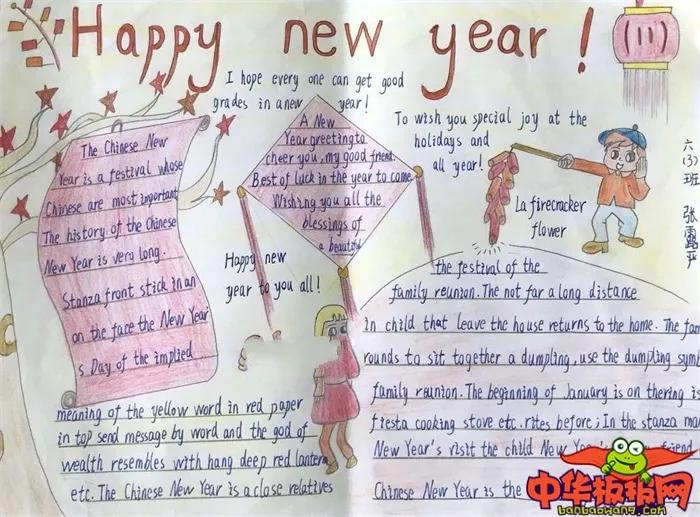 Happy new year!
I hope every one can get good
grades in a new year!
To wish you special joy at the
holidays and
all year!
The Chinese New
Year is a festival whose
Chinese are most important.
The history of the Chinese
New Year is very long.
Stanza front stick in an
on the face the New Year'
s Day of the implied
meaning of the yellow word in red paper
in top send message by word and the god of
wealth resembles with hang deep red lantern
etc. The Chinese New Year is a close relatives
A New
Year greeting to
cheer you, my good friend.
Best of luck in the year to come
Wishing you all the
blessings of
a beautiful
Happy new
year to you all!
La firecracker
flower
六(3)班 张露
the festival of the
family reunion. The not far a long distance
in child that leave the house returns to the home. The fam
rounds to sit together a dumpling, use the dumpling symb
family reunion. The beginning of January is on thering is
fiesta cooking stove etc. rites before; In the stanza ma
New Year's visit the child New Year' friend
Chinese New Year is the
中华板报网
banbaowang.com